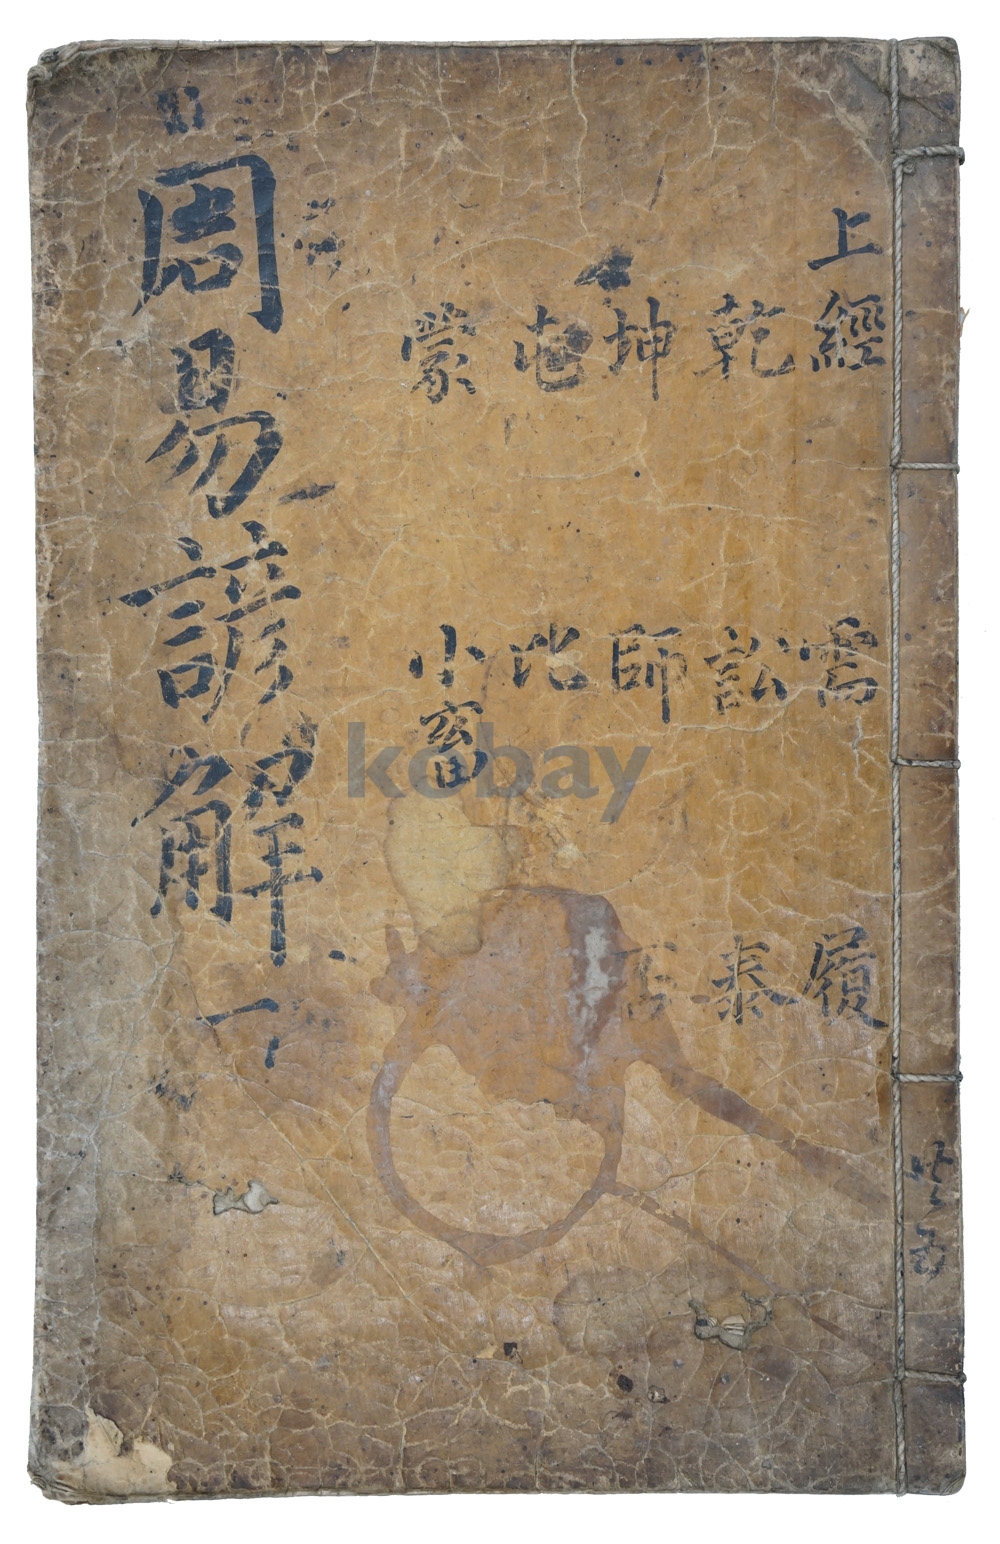 上經
乾
坤
屯
蒙
需
訟
師
比
小畜
履
泰
否
周易諺解 一
共五
kobay